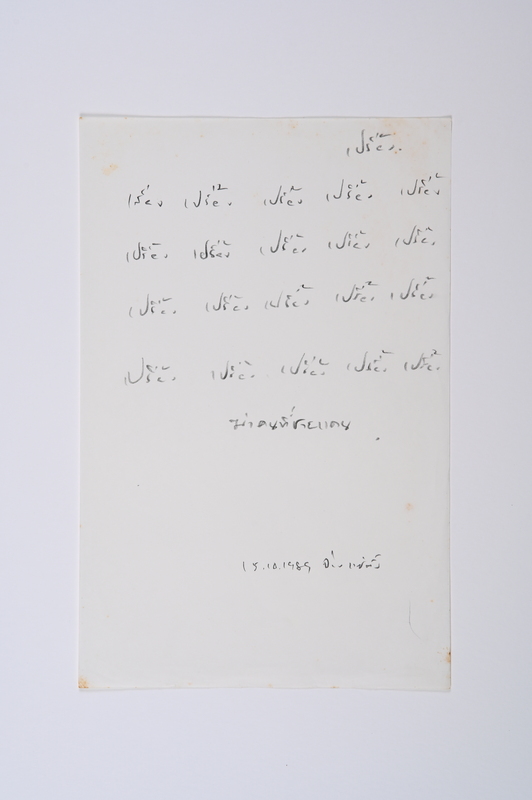 เปรี้ยง.
เปรี้ยง เปรี้ยง เปรี้ยง เปรี้ยง เปรี้ยง
เปรี้ยง เปรี้ยง เปรี้ยง เปรี้ยง เปรี้ยง
เปรี้ยง เปรี้ยง เปรี้ยง เปรี้ยง เปรี้ยง
เปรี้ยง เปรี้ยง เปรี้ยง เปรี้ยง เปรี้ยง
ฆ่าคนที่ชายแดน
15.10.1989 จ่าง แซ่ตั้ง